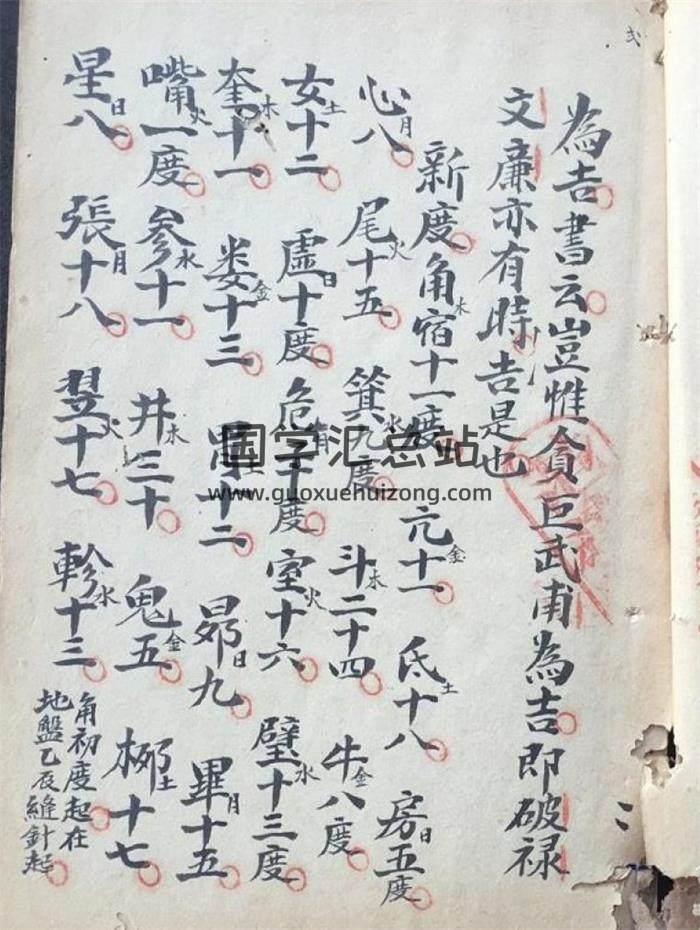 弍
為吉書云豈惟貪巨武甫為吉即破禄
文廉亦有時吉是也
新度角木宿十一度 亢金十一 氐土十八 房日五度
心月八 尾火十五 箕水九度 斗木二十四 牛金八度
女土十二 虛日十度 危月十度 室火十六 壁水十三度
奎木十一 婁金十三 胃土十二 昴日九 畢月十五
嘴火一度 參水十一 井木三十 鬼金五 柳土十七
星日八 張月十八 翌火十七 軫水十三
角初度起在
地盤乙辰縫針起
国学汇总站
www.guoxuehuizong.com